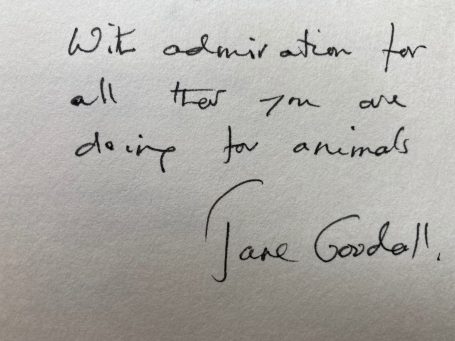 With admiration for
all that you are
doing for animals
Jane Goodall.